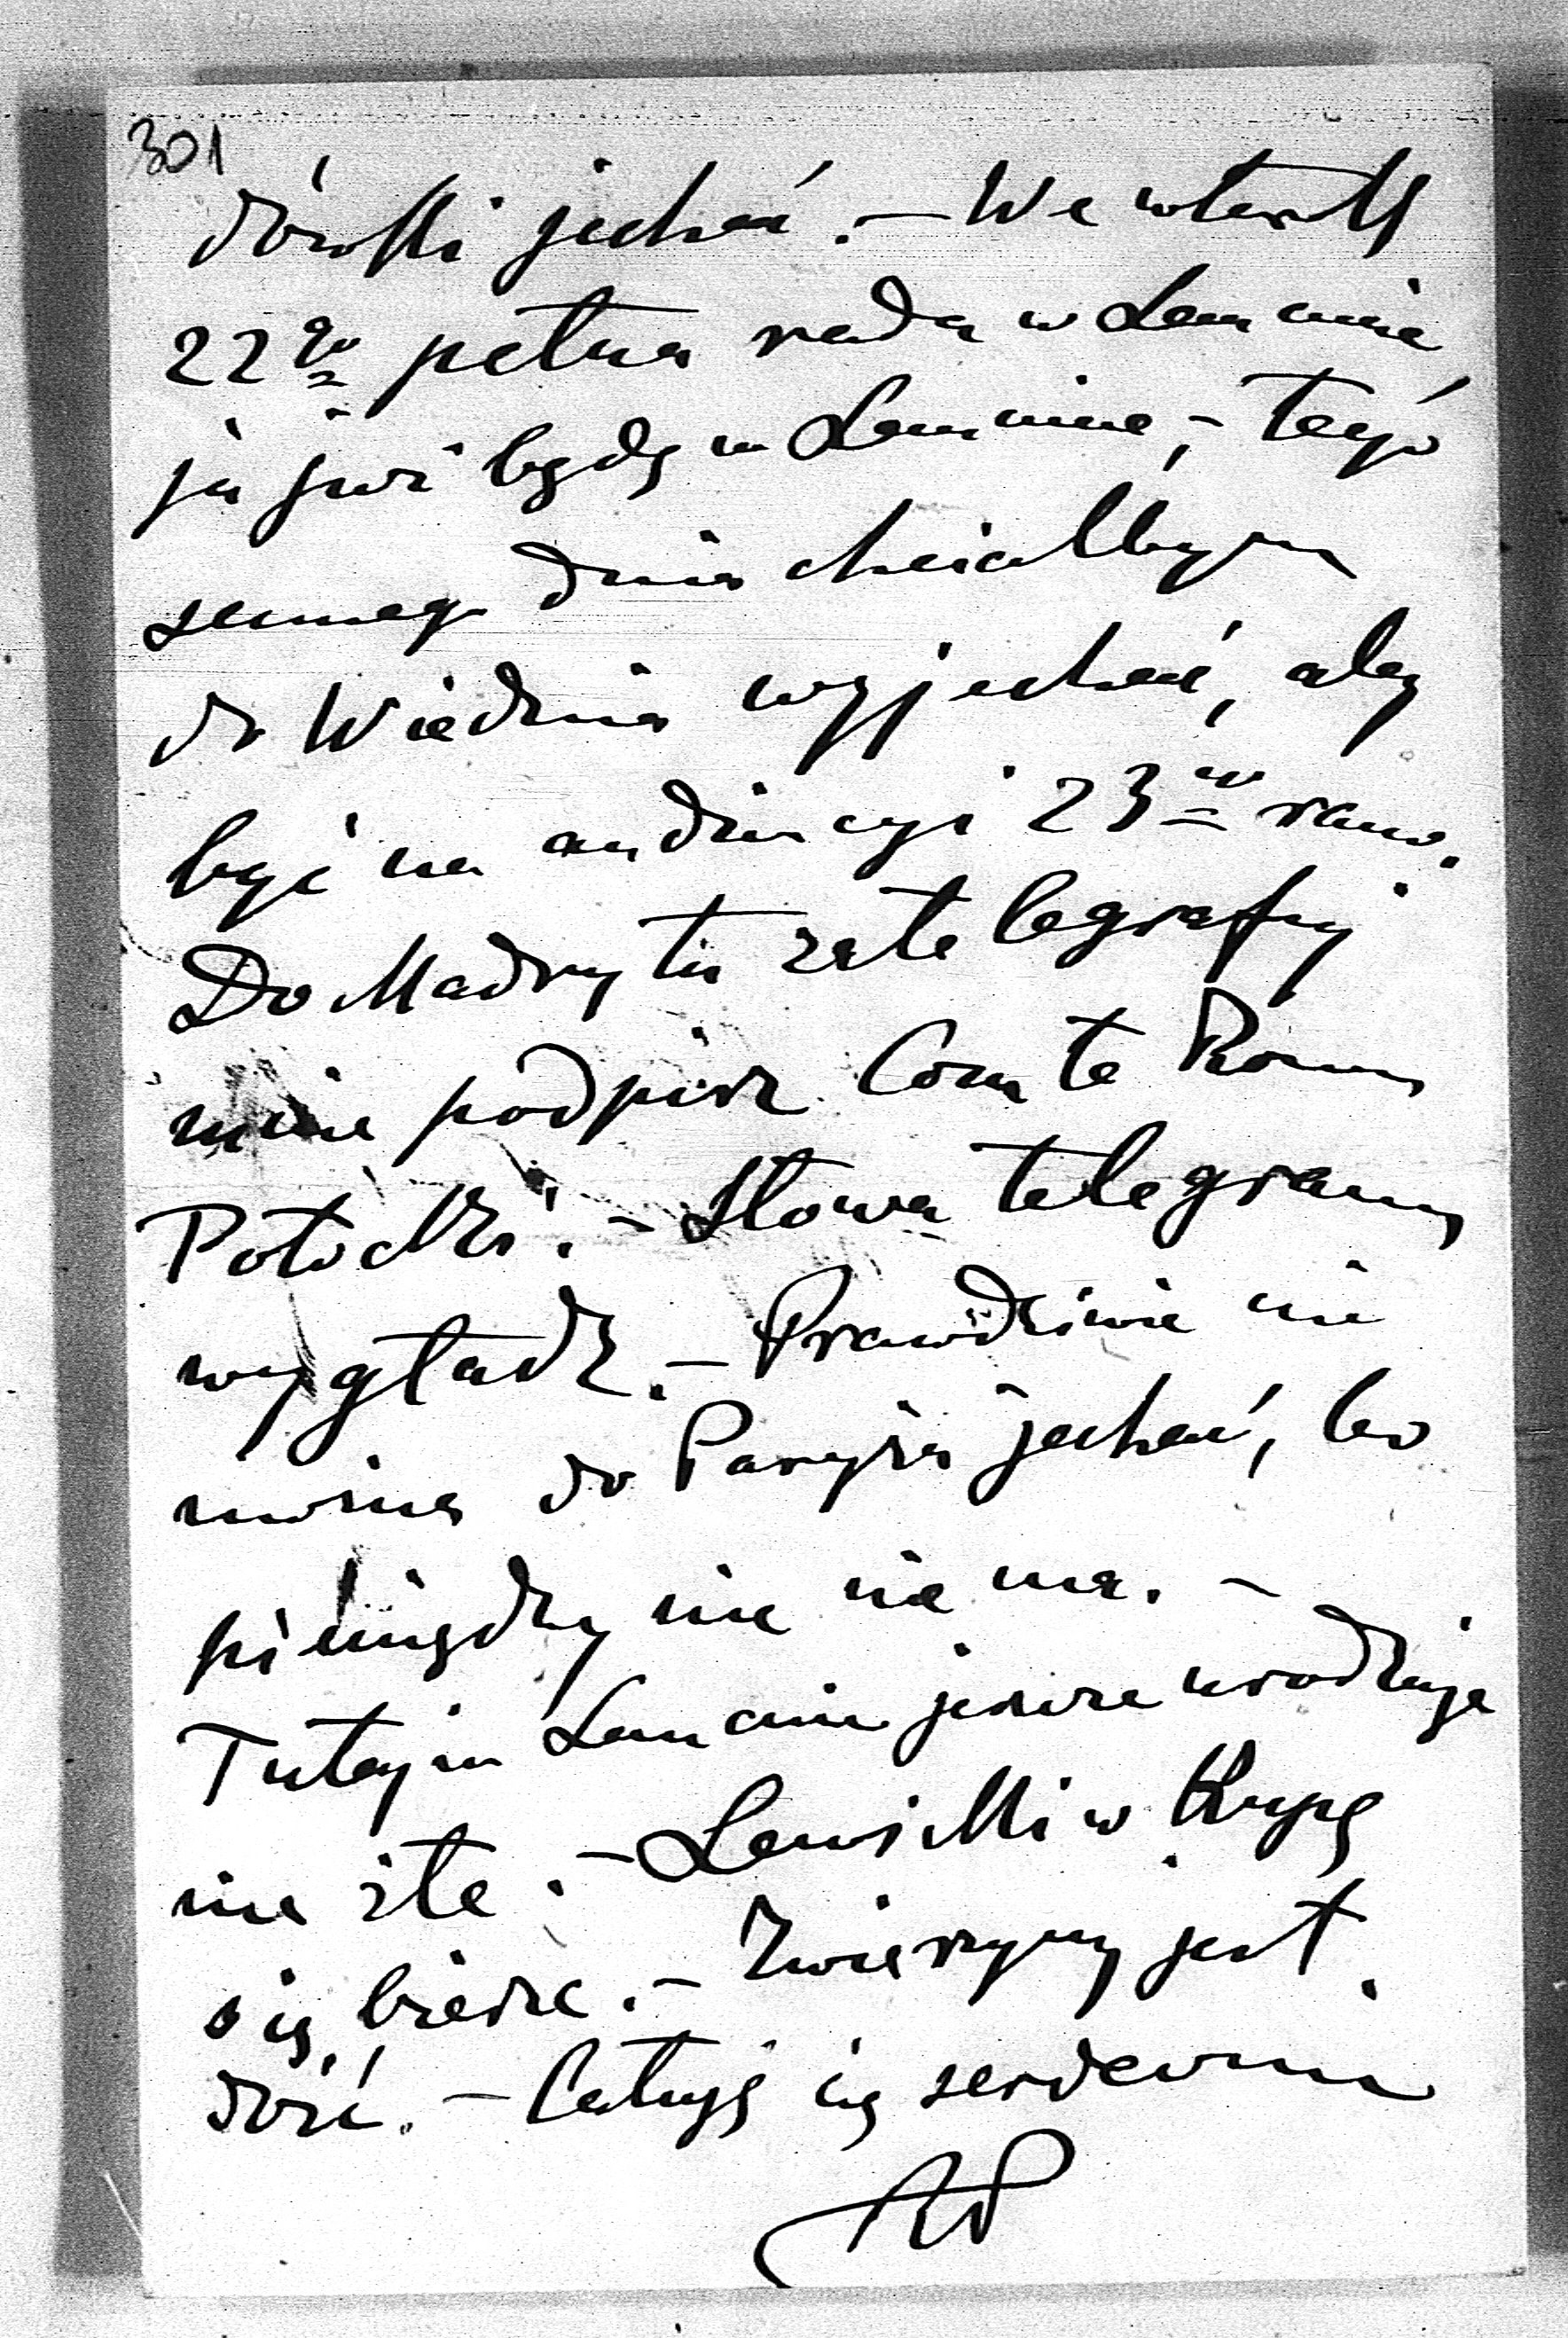 301
dówki jechać. – We wtorek
22go pełna rada w Lancucie
ja już będę w Lancucie, – tegoż
samego dnia chciałbym
do Wiednia wyjechać, aby
być na audiencyi 23go rano.
Do Madrytu zatelegrafuj
mnie podpisz Comte Roman
Potocki. – Słowa telegramu
wygładź. – Prawdziwie nie
można do Paryża jechać, bo
pieniędzy nie ma. –
Tutaj w Lancucie jeszcze urodzaje
nie złe. – Lewicki w kupę
się bierze. – Zwierzyny jest
dość. – Całuję cię serdecznie
RP